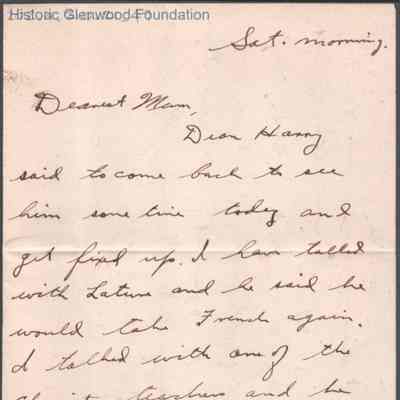 Historic Glenwood Foundation
Sat. morning.
Dearest Mam,
Dean Harry
said to come back to see
him some time today and
get fixed up. I have talked
with Lature and he said he
would take French again.
I talked with one of the
teachers and he